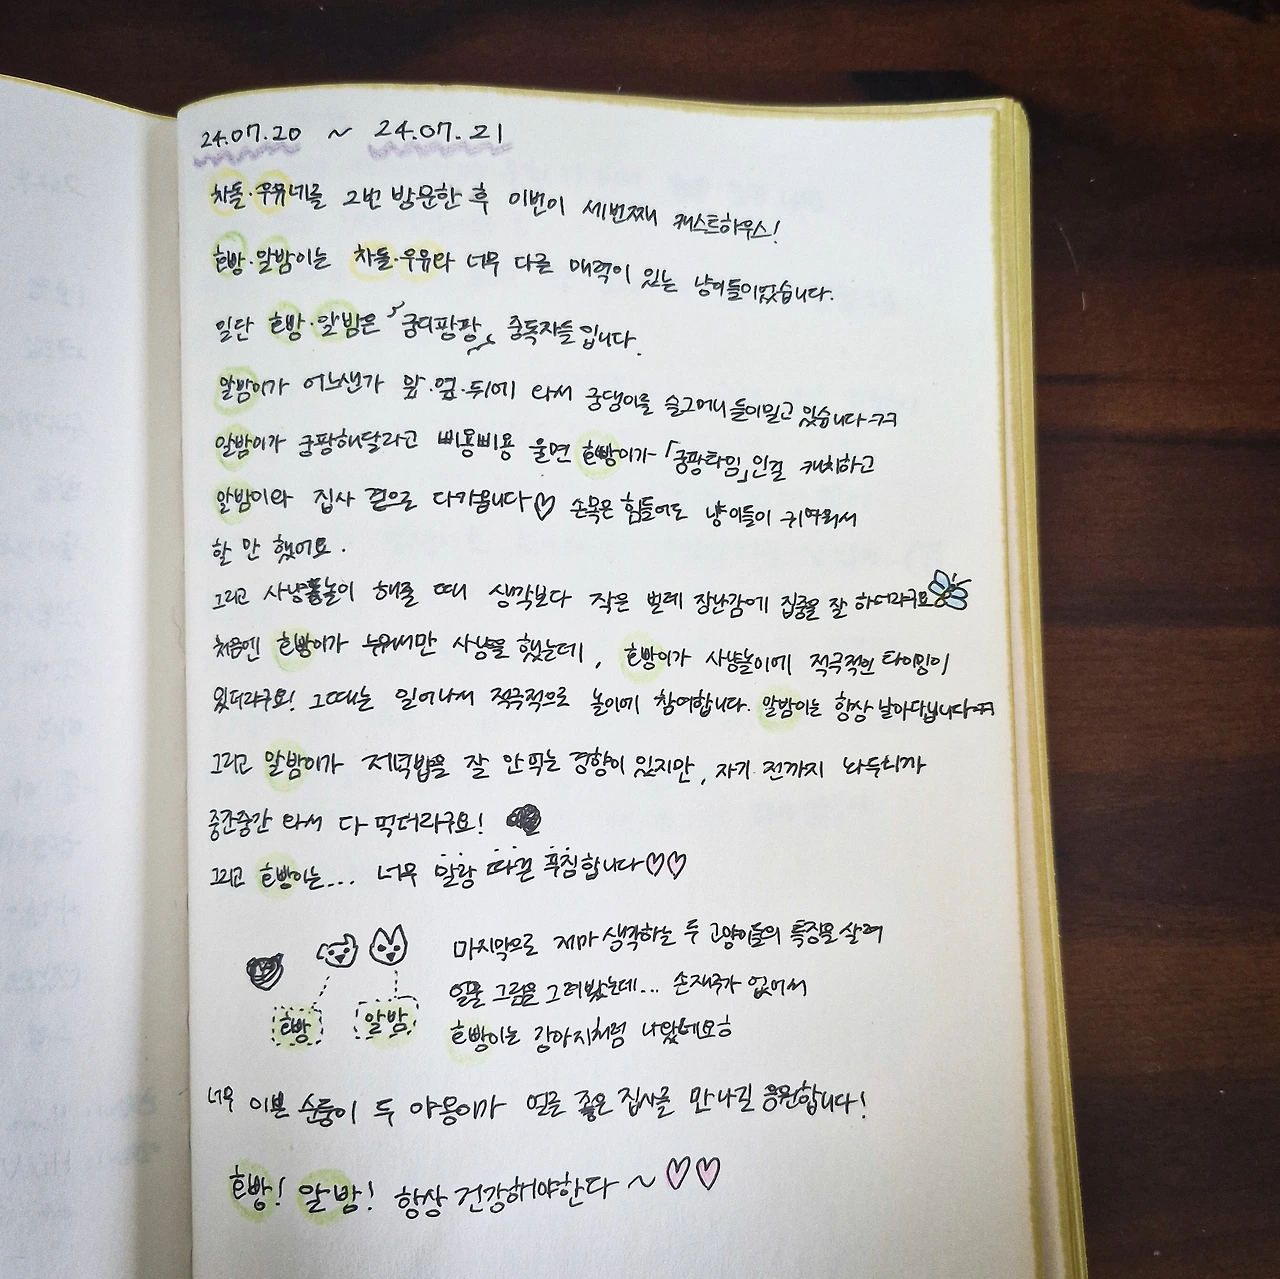 24.07.20 ~ 24.07.21
차돌·우유네를 2번 방문한 후 이번이 세번째 캐스트하우스!
호빵·알밤이는 차돌·우유와 너무 다른 매력이 있는 냥이들이었습니다.
일단 호빵·알밤은 궁디팡팡 중독자들입니다.
알밤이가 어느샌가 앞·옆·뒤에 와서 궁댕이를 슬그머니 들이밀고 있습니다ㅋㅋ
알밤이가 궁팡해달라고 삐용삐용 울면 호빵이가 「궁팡타임」인걸 캐치하고
알밤이와 집사 곁으로 다가옵니다♡ 손목은 힘들어도 냥이들이 귀여워서
할 만 했어요.
그리고 사냥놀이 해줄 때 생각보다 작은 벌레 장난감에 집중을 잘 하더라구요
처음엔 호빵이가 누워서만 사냥을 했는데, 호빵이가 사냥놀이에 적극적인 타이밍이
있더라구요! 그때는 일어나서 적극적으로 놀이에 참여합니다. 알밤이는 항상 날아다닙니다ㅋㅋ
그리고 알밤이가 저녁밥을 잘 안먹는 경향이 있지만, 자기 전까지 놔두니까
중간중간 와서 다 먹더라구요!
그리고 호빵이는... 너무 말랑 따끈 푸짐합니다♡♡
마지막으로 제가 생각하는 두 고양이들의 특징을 살려
얼굴 그림을 그려봤는데... 손재주가 없어서
호빵 알밤
호빵이는 강아지처럼 나왔네요ㅎ
너무 이쁜 순둥이 두 야옹이가 얼른 좋은 집사를 만나길 응원합니다!
호빵! 알밤! 항상 건강해야한다~♡♡